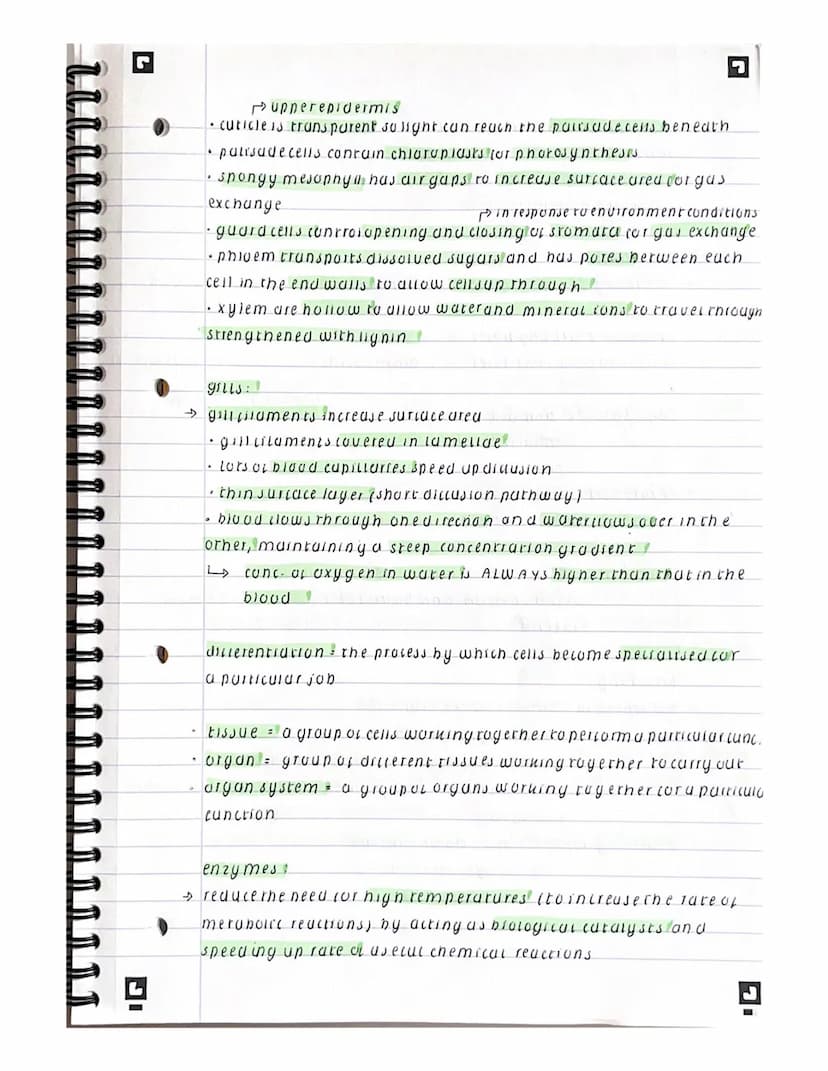 → upper epidermis
• cuticle is transparent so light can reach the palisade cells beneath
• palisade cells contain chloroplasts for photosynthesis
• spongy mesophyll has air gaps to increase surface area for gas
exchange
→ in response to environment conditions
• guard cells control opening and closing of stomata for gas exchange
• phloem transports dissolved sugars and has pores between each
cell in the end walls to allow cell sap through
• xylem are hollow to allow water and mineral ions to travel through
strengthened with lignin
gills:
→ gill filaments increase surface area
• gill filaments covered in lamellae
• lots of blood capillaries speed up diffusion
• thin surface layer (short diffusion pathway)
• blood flows through one direction and water flows over in the
other, maintaining a steep concentration gradient
↳ conc. of oxygen in water is ALWAYS higher than that in the
blood
differentiation = the process by which cells become specialised for
a particular job
• tissue = a group of cells working together to perform a particular func.
• organ = group of different tissues working together to carry out
• organ system = a group of organs working together for a particula
function
enzymes:
→ reduce the need for high temperatures (to increase the rate of
metabolic reactions) by acting as biological catalysts and
speeding up rate of useful chemical reactions